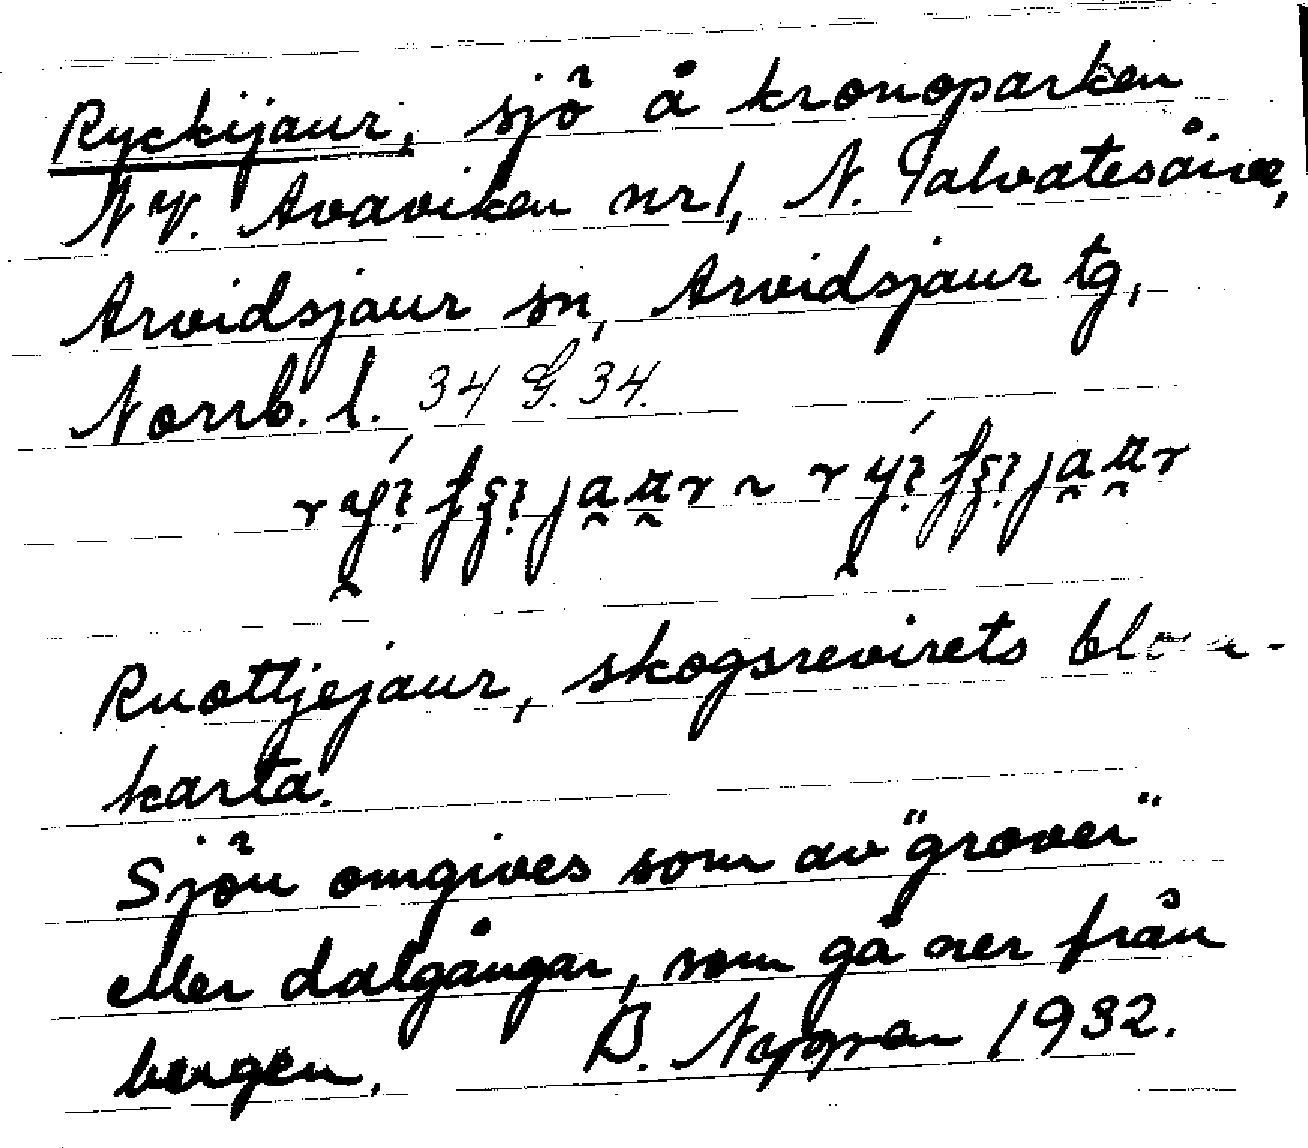 Ryckijaur, sjö å kronoparken
NV. Avaviken nr 1, N. Talvatesåive,
Arvidsjaur sn, Arvidsjaur tg,
Norrb. l. 34 G. 34.
Ruottjejaur, skogsrevirets
karta.
Sjön omgives som av "grover"
eller dalgångar, som gå ner från
bergen. B. Nappran 1932.